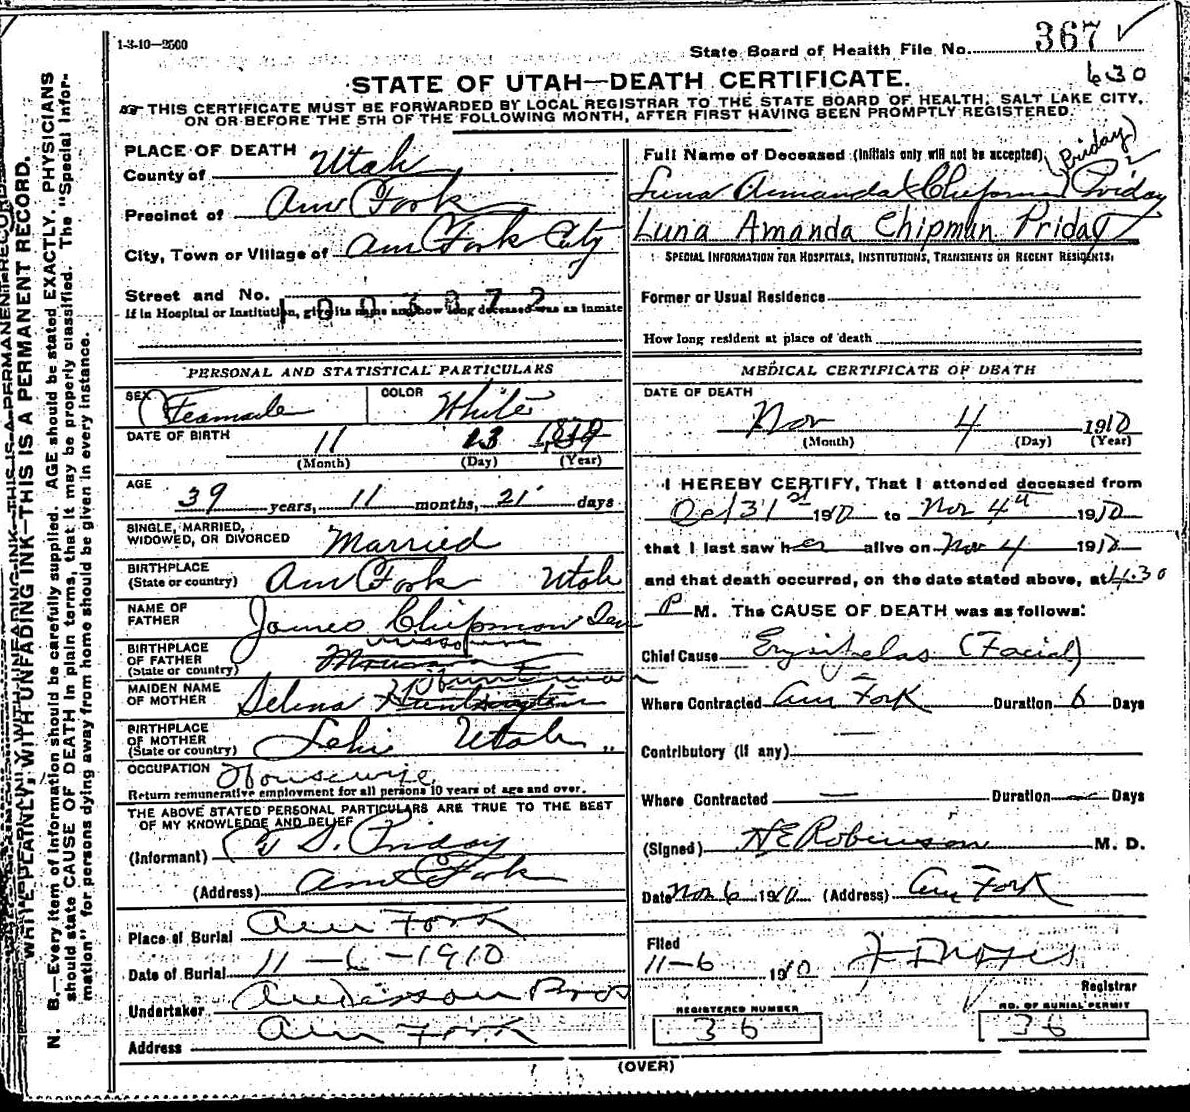 1-3-10—2500
State Board of Health File No. 367
630
STATE OF UTAH—DEATH CERTIFICATE.
THIS CERTIFICATE MUST BE FORWARDED BY LOCAL REGISTRAR TO THE STATE BOARD OF HEALTH, SALT LAKE CITY,
ON OR BEFORE THE 5TH OF THE FOLLOWING MONTH, AFTER FIRST HAVING BEEN PROMPTLY REGISTERED.
PLACE OF DEATH
County of Utah
Precinct of Am Fork
City, Town or Village of Am Fork City
Street and No.
1003872
If in Hospital or Institution, give its name and how long deceased was an inmate
Full Name of Deceased (Initials only will not be accepted) (Priday)
Luna Amanda Chipman Priday
Luna Amanda Chipman Priday
SPECIAL INFORMATION FOR HOSPITALS, INSTITUTIONS, TRANSIENTS OR RECENT RESIDENTS.
Former or Usual Residence
How long resident at place of death
PERSONAL AND STATISTICAL PARTICULARS
SEX Feamale COLOR White
DATE OF BIRTH 11 13
(Month) (Day) (Year)
AGE 39 years, 11 months, 21 days
SINGLE, MARRIED,
WIDOWED, OR DIVORCED Married
BIRTHPLACE
(State or country) Am Fork Utah
NAME OF
FATHER James Chipman Sen
BIRTHPLACE
OF FATHER
(State or country) Missouri
MAIDEN NAME
OF MOTHER Selena Huntsman
BIRTHPLACE
OF MOTHER
(State or country) Lehi Utah
OCCUPATION Housewife
Return remunerative employment for all persons 10 years of age and over.
THE ABOVE STATED PERSONAL PARTICULARS ARE TRUE TO THE BEST
OF MY KNOWLEDGE AND BELIEF
(Informant) S. Priday
(Address) Am Fork
Place of Burial Am Fork
Date of Burial 11-6-1910
Undertaker Anderson Bros
Address Am Fork
MEDICAL CERTIFICATE OF DEATH
DATE OF DEATH
Nov 4 1910
(Month) (Day) (Year)
I HEREBY CERTIFY, That I attended deceased from
Oct 31st 1910 to Nov 4th 1910
that I last saw her alive on Nov 4 1910
and that death occurred, on the date stated above, at 4.30
P M. The CAUSE OF DEATH was as follows:
Chief Cause Erysipelas (Facial)
Where Contracted Am Fork Duration 6 Days
Contributory (if any) —
Where Contracted — Duration — Days
(Signed) H E Robinson M. D.
Date Nov 6 1910 (Address) Am Fork
Filed
11-6 1910
Registrar
REGISTERED NUMBER
36
NO. OF BURIAL PERMIT
36
(OVER)
WRITE PLAINLY, WITH UNFADING INK—THIS IS A PERMANENT RECORD.
N. B.—Every item of information should be carefully supplied. AGE should be stated EXACTLY. PHYSICIANS
should state CAUSE OF DEATH in plain terms, that it may be properly classified. The "Special Infor-
mation" for persons dying away from home should be given in every instance.